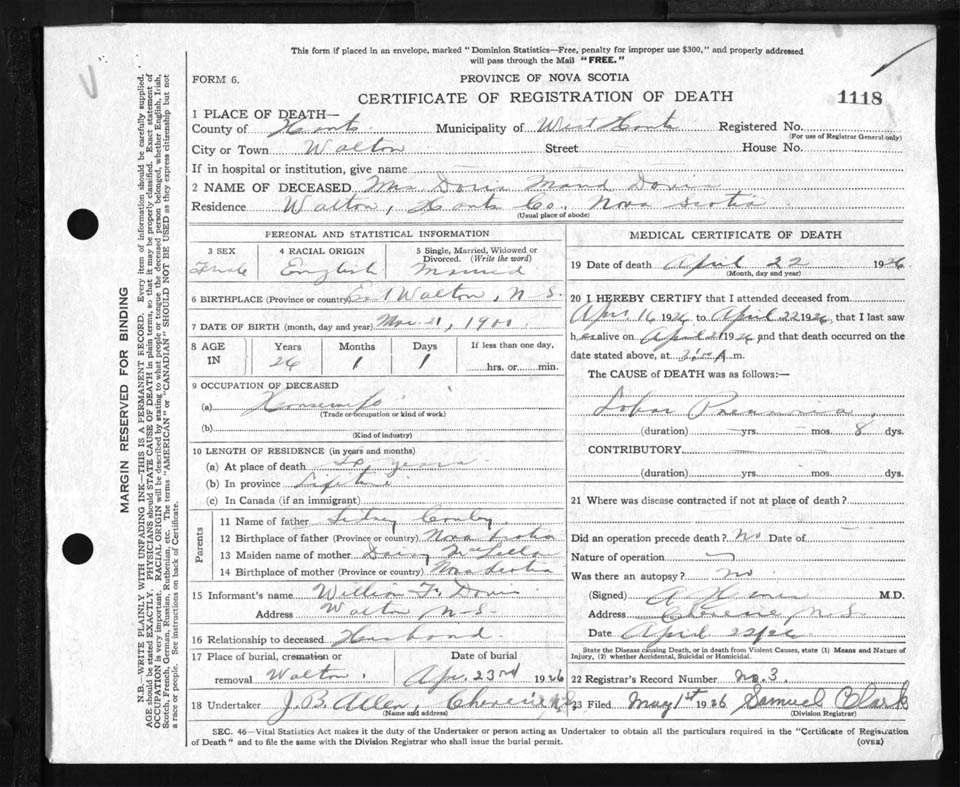 This form if placed in an envelope, marked "Dominion Statistics—Free, penalty for improper use $300," and properly addressed
will pass through the Mail "FREE."
FORM 6.
PROVINCE OF NOVA SCOTIA
CERTIFICATE OF REGISTRATION OF DEATH
1118
1 PLACE OF DEATH—
County of Hants Municipality of West Hants Registered No.
(For use of Registrar General only)
City or Town Walton Street House No.
If in hospital or institution, give name
2 NAME OF DECEASED Mrs Doris Maud Davis
Residence Walton, Hants Co., Nova Scotia
(Usual place of abode)
PERSONAL AND STATISTICAL INFORMATION
3 SEX
Female
4 RACIAL ORIGIN
English
5 Single, Married, Widowed or
Divorced. (Write the word)
Married
6 BIRTHPLACE (Province or country) Walton, N.S.
7 DATE OF BIRTH (month, day and year) Mar 21, 1900
8 AGE IN
Years 26
Months 1
Days 1
If less than one day,
hrs. or min.
9 OCCUPATION OF DECEASED
(a) Housewife
(Trade or occupation or kind of work)
(b)
(Kind of industry)
10 LENGTH OF RESIDENCE (in years and months)
(a) At place of death years
(b) In province Lifetime
(c) In Canada (if an immigrant)
Parents
11 Name of father Sidney
12 Birthplace of father (Province or country) Nova Scotia
13 Maiden name of mother Daisy McLellan
14 Birthplace of mother (Province or country) Nova Scotia
15 Informant's name William F. Davis
Address Walton N.S.
16 Relationship to deceased Husband
17 Place of burial, cremation or
removal Walton,
Date of burial
Apr. 23rd 1926
18 Undertaker J. B. Allen, Cheverie N.S.
(Name and address)
MEDICAL CERTIFICATE OF DEATH
19 Date of death April 22 1926
(Month, day and year)
20 I HEREBY CERTIFY that I attended deceased from
Apr 16 1926 to April 22 1926, that I last saw
her alive on April 21 1926 and that death occurred on the
date stated above, at A.m.
The CAUSE of DEATH was as follows:—
Lobar Pneumonia,
(duration) yrs. mos. 8 dys.
CONTRIBUTORY
(duration) yrs. mos. dys.
21 Where was disease contracted if not at place of death?
Did an operation precede death? No Date of
Nature of operation
Was there an autopsy? no
(Signed) M.D.
Address Cheverie, N.S.
Date April 22/26
State the Disease causing Death, or in death from Violent Causes, state (1) Means and Nature of
Injury, (2) whether Accidental, Suicidal or Homicidal.
22 Registrar's Record Number No. 3.
23 Filed May 1st 1926 Samuel Clark
(Division Registrar)
SEC. 46—Vital Statistics Act makes it the duty of the Undertaker or person acting as Undertaker to obtain all the particulars required in the "Certificate of Registration
of Death" and to file the same with the Division Registrar who shall issue the burial permit.
(OVER)
MARGIN RESERVED FOR BINDING
N.B.—WRITE PLAINLY WITH UNFADING INK—THIS IS A PERMANENT RECORD. Every item of information should be carefully supplied.
AGE should be stated EXACTLY. PHYSICIANS should STATE CAUSE OF DEATH in plain terms, so that it may be properly classified. Exact statement of
OCCUPATION is very important. RACIAL ORIGIN will be described by stating to what people or tongue the deceased person belonged, whether English, Irish,
Scotch, French, German, Russian, Ruthenian, etc. The terms "AMERICAN" or "CANADIAN" SHOULD NOT BE USED as they express citizenship but not
a race or people. See instructions on back of Certificate.